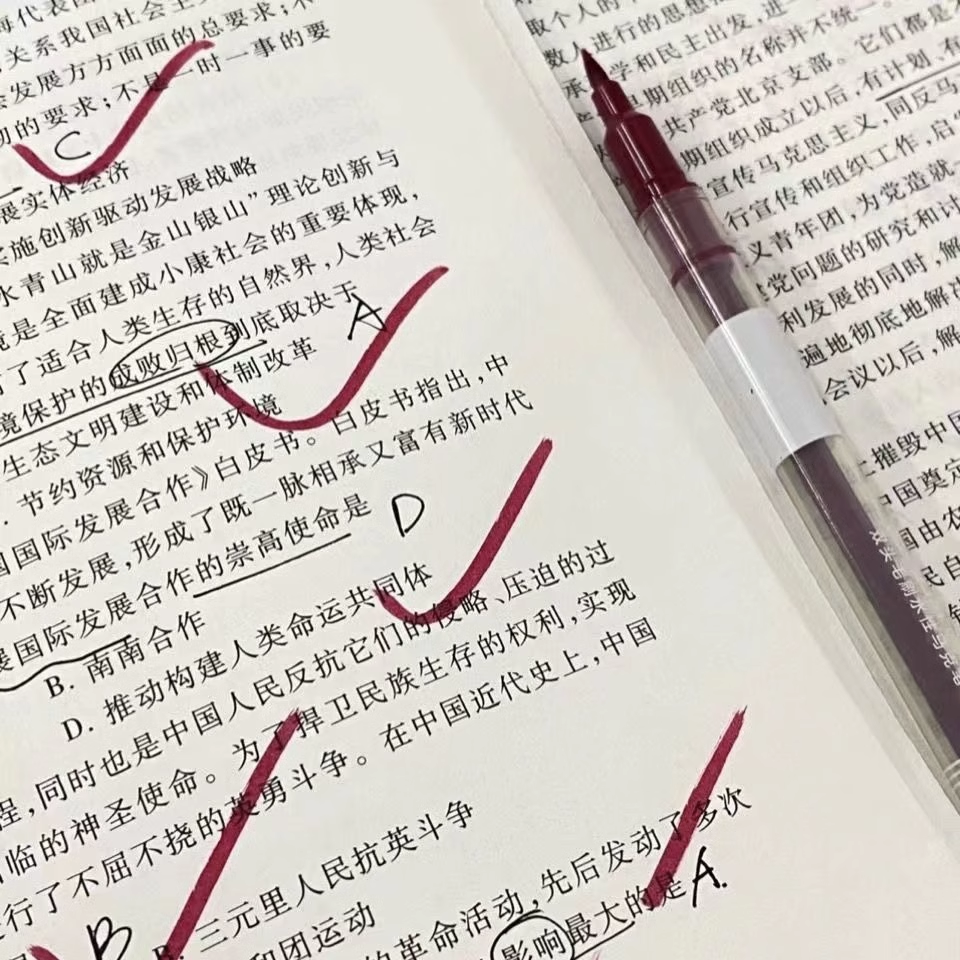 海代表团
关系我国社会主
会发展方方面面的总要求;不
不是一时一事的要
的要求;
C
展实体经济
实施创新驱动发展战略
水青山就是金山银山”理论创新与
境是全面建成小康社会的重要体现,
了适合人类生存的自然界,人类社会
境保护的成败归根到底取决于
A
生态文明建设和体制改革
节约资源和保护环境
国国际发展合作》白皮书。白皮书指出,中
不断发展,形成了既一脉相承又富有新时代
展国际发展合作的崇高使命是
D
B. 南南合作
D. 推动构建人类命运共同体
程,同时也是中国人民反抗它们的侵略、压迫的过
临的神圣使命。为了捍卫民族生存的权利,实现
行了不屈不挠的英勇斗争。在中国近代史上,中国
B
B. 三元里人民抗英斗争
和团运动
的革命活动,先后发动了多次
影响最大的是
A.
取个人的
数人进行的思想
学和民主出发,进一
早期组织的名称并不统一。它们都是
共产党北京支部。
期组织成立以后,有计划、有
宣传马克思主义,同反马
行宣传和组织工作,启
义青年团,为党造就
党问题的研究和讨
利发展的同时,解
遍地彻底地解决
会议以后,解
摧毁中国
中国奠定
国由农
民自